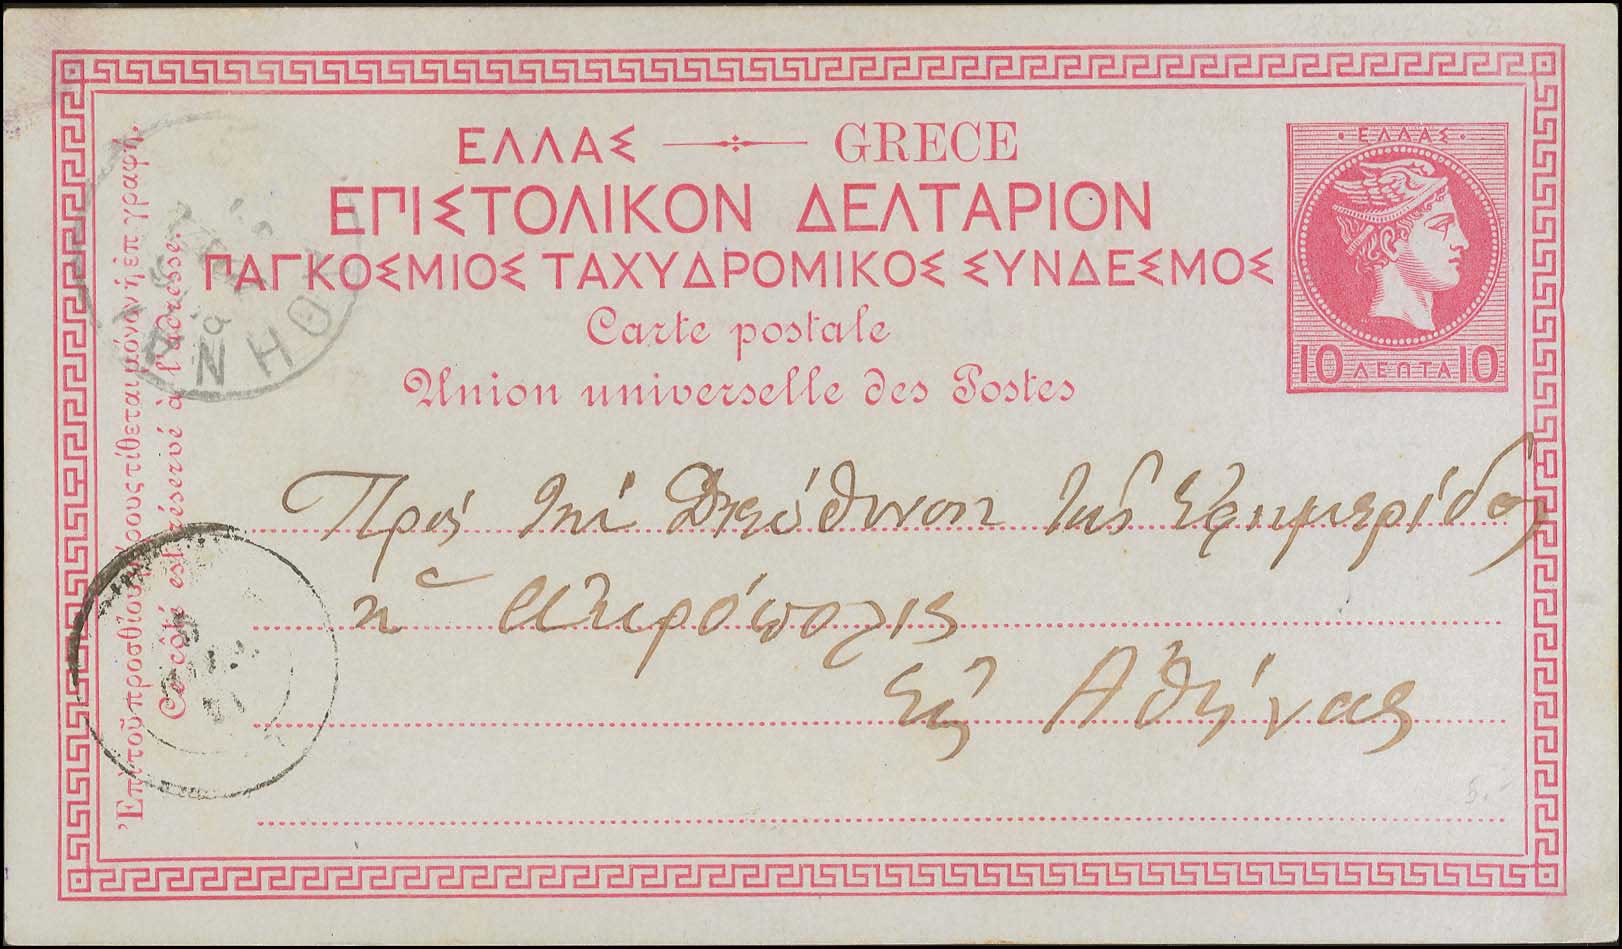 ΕΛΛΑΣ — GRECE
ΕΠΙΣΤΟΛΙΚΟΝ ΔΕΛΤΑΡΙΟΝ
ΠΑΓΚΟΣΜΙΟΣ ΤΑΧΥΔΡΟΜΙΚΟΣ ΣΥΝΔΕΣΜΟΣ
Carte postale
Union universelle des Postes
·ΕΛΛΑΣ·
10 ΛΕΠΤΑ 10
Πρός τήν Διεύθυνσιν τῆς Ἐφημερίδος
ἡ Ἀκρόπολις
Εἰς Ἀθήνας
Ἐπὶ τοῦ προσθίου μέρους τίθεται μόνον ἡ ἐπιγραφή.
Ce côté est réservé à l'adresse.
ΑΘΗΝΑΙ